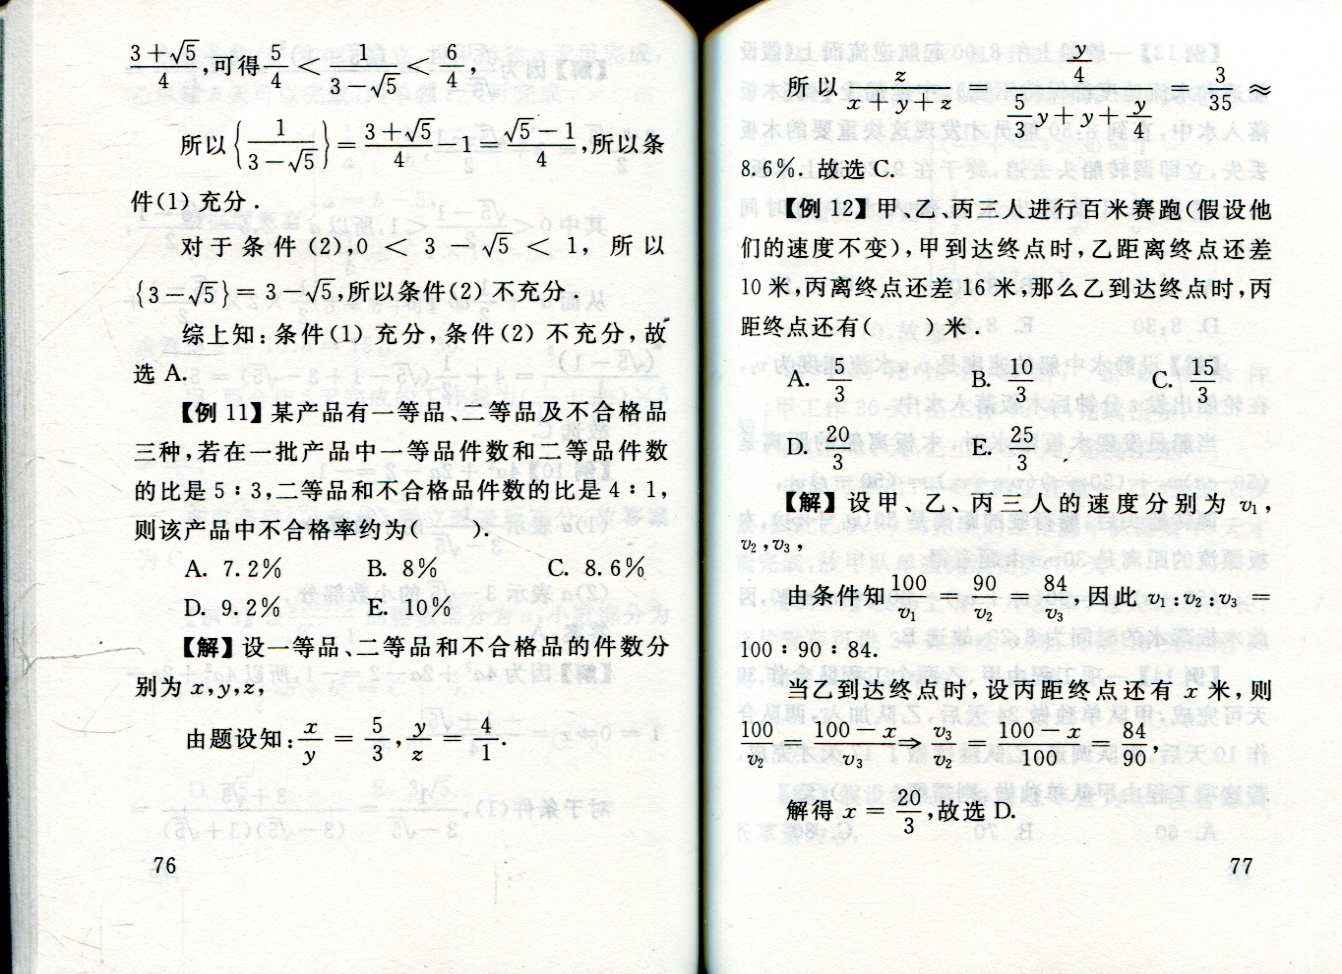 3+√5/4,可得 5/4 < 1/(3-√5) < 6/4,
所以{1/(3-√5)}=(3+√5)/4-1=(√5-1)/4,所以条
件(1)充分.
对于条件(2),0 < 3 - √5 < 1, 所以
{3-√5}=3-√5,所以条件(2)不充分.
综上知:条件(1)充分,条件(2)不充分,故
选 A.
【例 11】某产品有一等品、二等品及不合格品
三种,若在一批产品中一等品件数和二等品件数
的比是 5:3,二等品和不合格品件数的比是 4:1,
则该产品中不合格率约为( ).
A. 7.2% B. 8% C. 8.6%
D. 9.2% E. 10%
【解】设一等品、二等品和不合格品的件数分
别为 x,y,z,
由题设知: x/y = 5/3, y/z = 4/1.
76
所以 z/(x+y+z) = (y/4)/(5/3y+y+y/4) = 3/35 ≈
8.6%. 故选 C.
【例 12】甲、乙、丙三人进行百米赛跑(假设他
们的速度不变),甲到达终点时,乙距离终点还差
10 米,丙离终点还差 16 米,那么乙到达终点时,丙
距终点还有( )米.
A. 5/3 B. 10/3 C. 15/3
D. 20/3 E. 25/3
【解】设甲、乙、丙三人的速度分别为 v₁,
v₂,v₃,
由条件知 100/v₁ = 90/v₂ = 84/v₃,因此 v₁:v₂:v₃ =
100:90:84.
当乙到达终点时,设丙距终点还有 x 米,则
100/v₂ = (100-x)/v₃ → v₃/v₂ = (100-x)/100 = 84/90,
解得 x = 20/3,故选 D.
77